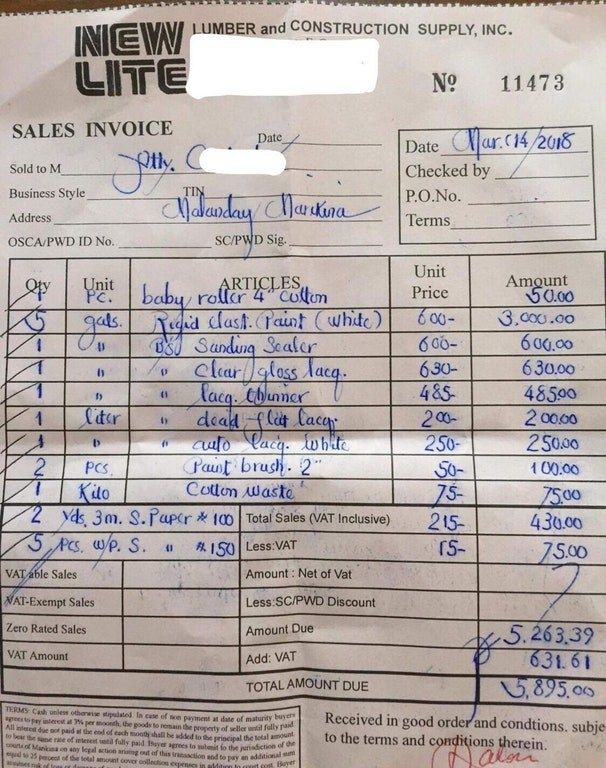 NEW LITE LUMBER and CONSTRUCTION SUPPLY, INC.
Nº 11473
SALES INVOICE
Date
Date Mar. 14/2018
Sold to M
Checked by
Business Style TIN
P.O.No.
Address Malanday Marikina
Terms
OSCA/PWD ID No. SC/PWD Sig.
Qty Unit ARTICLES Unit Price Amount
1 Pc. baby roller 4" cotton 50.00
5 gals. Rigid Elast. Paint (White) 600- 3,000.00
1 " Sanding Sealer 600- 600.00
1 " " clear gloss lacq. 630- 630.00
1 " " lacq. thinner 485- 485.00
1 liter " dead flat lacq. 200- 200.00
1 " " auto lacq. White 250- 250.00
2 pcs. Paint brush. 2" 50- 100.00
1 Kilo Cotton waste 75- 75.00
2 yds. 3m. S. Paper # 100 Total Sales (VAT Inclusive) 215- 430.00
5 pcs. w/p. S. " #150 Less:VAT 15- 75.00
VATable Sales Amount : Net of Vat
VAT-Exempt Sales Less:SC/PWD Discount
Zero Rated Sales Amount Due 5.263.39
VAT Amount Add: VAT 631.61
TOTAL AMOUNT DUE 5,895.00
TERMS: Cash unless otherwise stipulated. In case of non payment at date of maturity buyers
agrees to pay interest at 3% per month, the goods to remain the property of seller until fully paid.
All interest due not paid at the end of each month shall be added to the principal the total amount
to bear the same rate of interest until fully paid. Buyer agrees to submit to the jurisdiction of the
courts of Marikina on any legal action arising out of this transaction and to pay an additional sum
equal to 25 percent of the total amount
Received in good order and conditions. subje
to the terms and conditions therein.